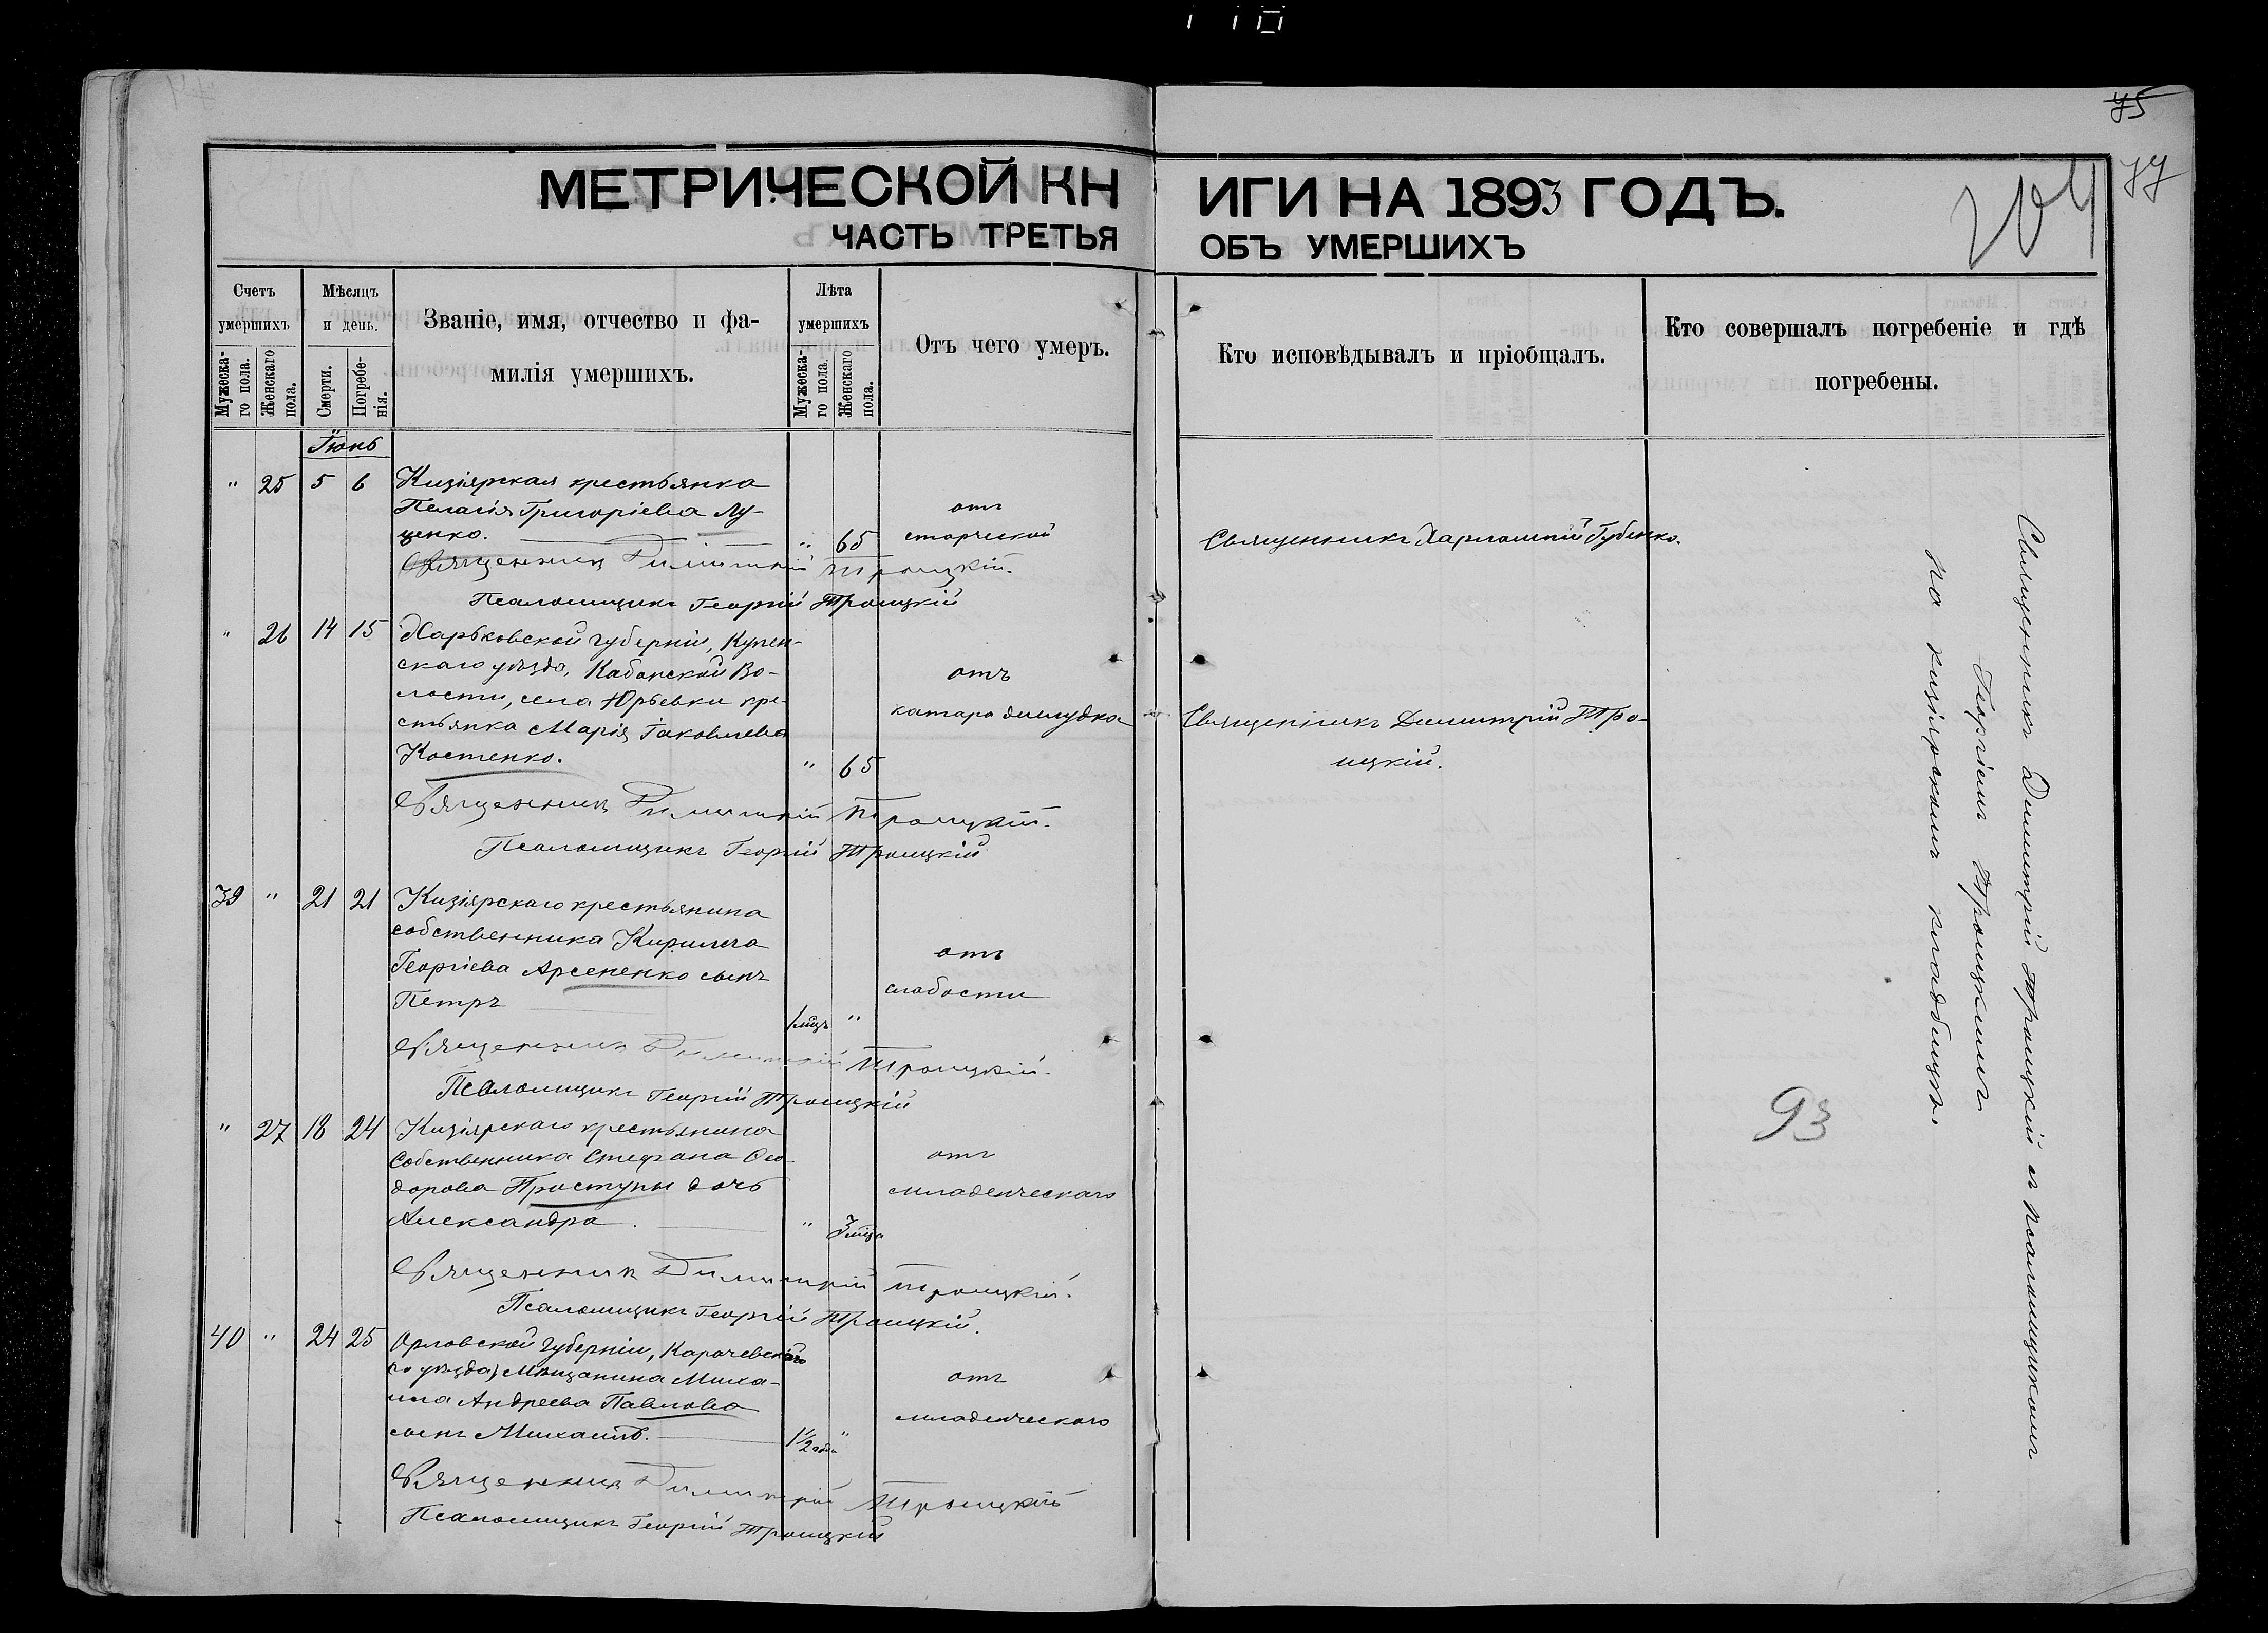 75
77
204
МЕТРИЧЕСКОЙ КНИГИ НА 1893 ГОДЪ.
ЧАСТЬ ТРЕТЬЯ ОБЪ УМЕРШИХЪ
Счетъ умершихъ
Мужеска-го пола.
Женскаго пола.
Мѣсяцъ и день.
Смерти.
Погребе-нія.
Званіе, имя, отчество и фа-
милія умершихъ.
Лѣта умершихъ
Мужеска-го пола.
Женскаго пола.
Отъ чего умеръ.
Кто исповѣдывалъ и пріобщалъ.
Кто совершалъ погребеніе и гдѣ
погребены.
Іюнь
" 25 5 6 Кизіярская крестьянка
Пелагія Григоріева Лу-
ценко. " 65
отъ
старческой
Священникъ Харлампій Губенко.
Священникъ Димитрій Троицкій.
Псаломщикъ Георгій Троицкій
" 26 14 15 Харьковской губерніи, Купен-
скаго уѣзда, Кабанской Во-
лости, села Юрьевки кре-
стьянка Марія Іаковлева
Костенко. " 65
отъ
катара желудка
Священникъ Димитрій Тро-
ицкій.
Священникъ Димитрій Троицкій.
Псаломщикъ Георгій Троицкій
39 " 21 21 Кизіярскаго крестьянина
собственника Кирилла
Георгіева Арсененко сынъ
Петръ 1 мцъ "
отъ
слабости
Священникъ Димитрій Троицкій.
Псаломщикъ Георгій Троицкій
" 27 18 24 Кизіярскаго крестьянина
собственника Стефана Ѳео-
дорова Простуны дочь
Александра. " 3 мца
отъ
младенческаго
Священникъ Димитрій Троицкій.
Псаломщикъ Георгій Троицкій.
40 " 24 25 Орловской губерніи, Карачевскаго
го уѣзда, Мѣщанина Миха-
ила Андреева Павлова
сынъ Михаилъ. 1 1/2 года "
отъ
младенческаго
Священникъ Димитрій Троицкій
Псаломщикъ Георгій Троицкій
Священникъ Димитрій Троицкій съ псаломщикомъ
Георгіемъ Троицкимъ
на кизіярскомъ кладбищѣ.
93